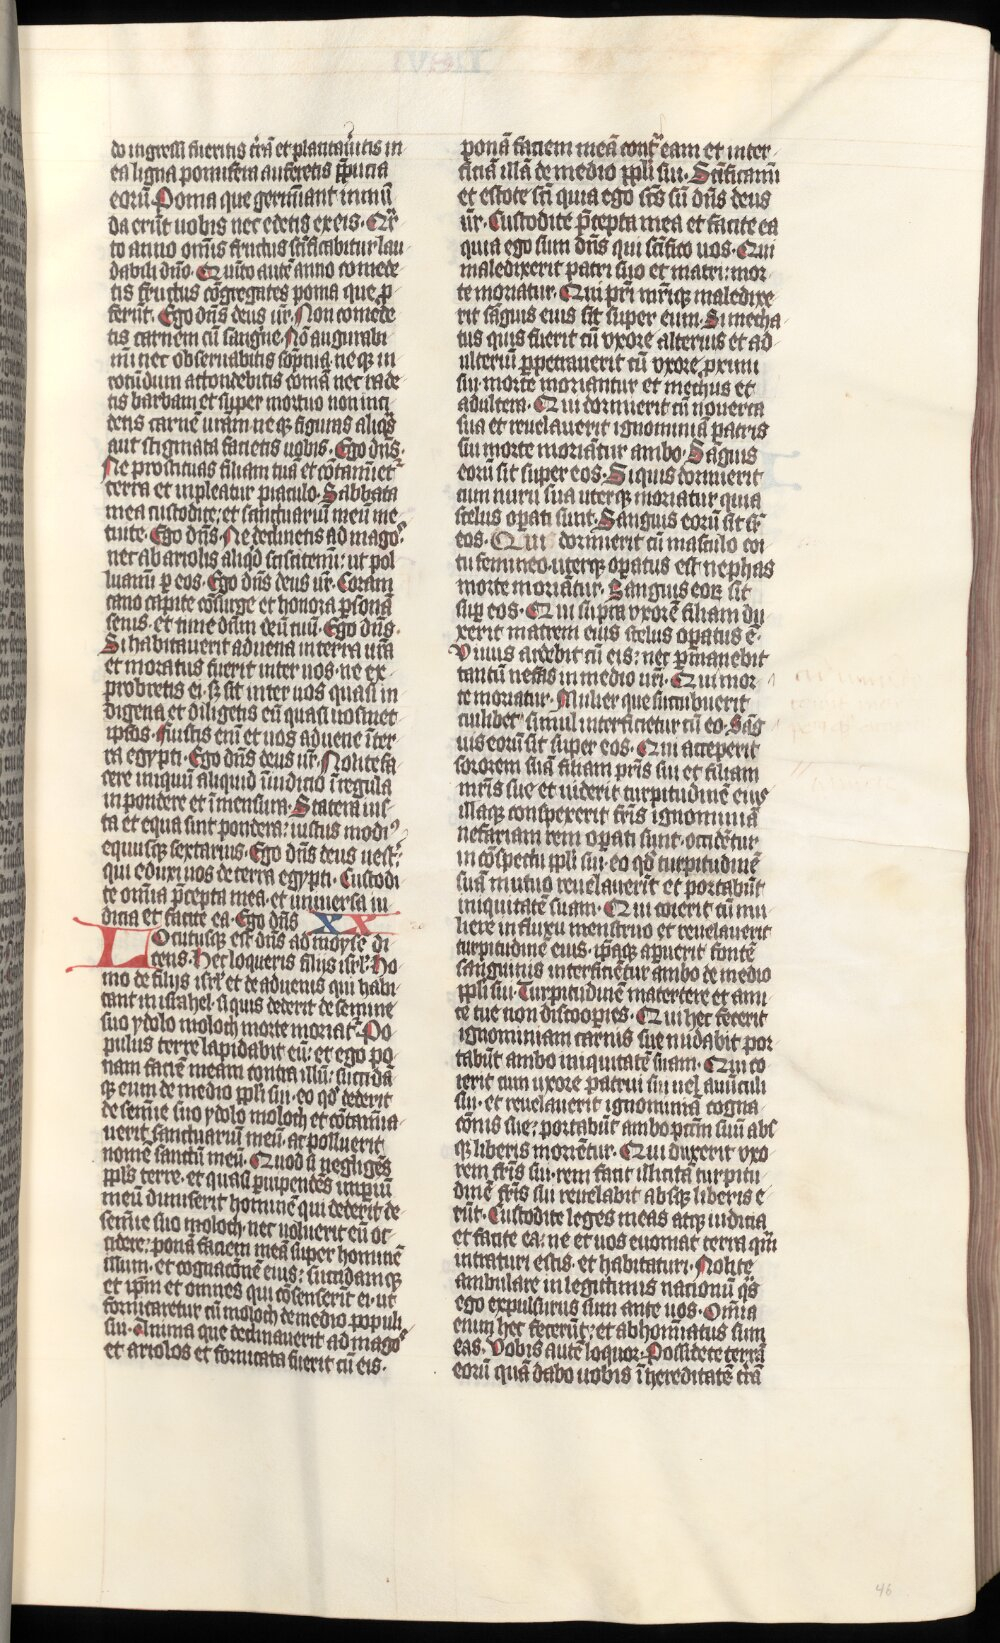 do ingressi fueritis t̄rā et plantaũitis in
ea ligna pomifera auferetis p̄pucia
eorū. Poma que germīant inmū
da erūt uobis nec edetis ex eis. Qr̄
to anno om̄is fructus sc̄ificabitur lau
dabilis dn̄o. Quīto autē anno comede
tis fructus cōgregātes poma que ꝓ
ferūt. Ego dn̄s deus ur̄. Non comede
tis carnem cū sāguīe. Nō augurabi
mī nec obseruabitis sōpnia. neqꝫ in
rotūdum attondebitis comā nec rade
tis barbam et super mortuo non inci
detis carnē ur̄am neqꝫ figuras aliqͣs
aut stigmata facietis uobis. Ego dn̄s.
Ne prostituas filiam tuā et cōtamīet᷑
terra et inpleatur piaculo. Sabbata
mea custodite: et sanctuariū meū me
tuite. Ego dn̄s. Ne declinetis ad magoˢ
nec ab ariolis aliqͥd sciscitemī: ut pol
luamī ꝑ eos. Ego dn̄s deus ur̄. Coram
cano capite cōsurge et honora ꝑsonā
senis. et time dn̄m deū tuū. Ego dn̄s.
Si habitauerit aduena in terra ur̄a
et moratus fuerit inter uos. ne ex
probretis ei. sꝫ sit inter uos quasi in
digena et diligetis eū quasi uosmet
ipsos. Fuistis enī et uos aduene īter
ra egypti. Ego dn̄s deus ur̄. Nolite fa
cere iniquū aliquid ī iudicio ī regula
in pondere et ī mensura. Statera ius
ta et equa sint pondera: iustus modiꝰ
equusqꝫ sextarius. Ego dn̄s deus uest᷑:
qui eduxi uos de terra egypti. Custodi
te om̄ia p̄cepta mea. et uniuersa iu
dicia et facite ea. Ego dn̄s XX
Locutusqꝫ est dn̄s ad moysē di
cens. Hec loqueris filijs isrl̄. Ho
mo de filijs isrl̄ et de aduenis qui habi
tant in israhel. si quis dederit de semine
suo ydolo moloch morte moriat᷑. Po
pulus terre lapidabit eū: et ego po
nam faciē meam contra illū: succidā
qꝫ eum de medio ppl̄i sui. eo qͦd dederit
de semīe suo ydolo moloch et cōtamīa
uerit sanctuariū meū. ac polluerit
nomē sanctū meū. Quod si negligēs
ppl̄s terre. et quasi ꝑuipendēs imꝑiū
meū dimiserit hominē qui dederit de
semīe suo moloch. nec uoluerit eū oc
cidere: ponā faciem meā super hominē
illum. et cognacōnē eius: succidamqꝫ
et ip̄m et omnes qui cōsenserit ei. ut
fornicaretur cū moloch de medio populi
sui. Anima que declinauerit ad magoˢ
et ariolos et fornicata fuerit cū eis.
ponā faciem meā contᷓ eam et inter
ficiā illā de medio ppl̄i sui. Sc̄ificamī
et estote sc̄i quia ego sc̄s sū dn̄s deus
ur̄. Custodite p̄cepta mea et facite ea
quia ego sum dn̄s qui sc̄ifico uos. Qui
maledixerit patri suo et matri: mor
te moriatur. Qui pr̄i mr̄iqꝫ maledixe
rit sāguis eius sit super eum. Si mecha
tus quis fuerit cū vxore alterius et ad
ulteriū ꝑpetrauerit cū vxore ꝓximi
sui. morte moriantur et mechus et
adultera. Qui dormierit cū nouerca
sua et reuelauerit ignominiā patris
sui morte moriātur ambo. Sāguis
eorū sit super eos. Si quis dormierit
cum nuru sua uterqꝫ moriatur quia
scelus oꝑati sunt. Sanguis eorū sit sᷓ
eos. Qui dormierit cū masculo coi
tu femineo. uterqꝫ oꝑatus est nephas
morte moriātur. Sanguis eoꝝ sit
suꝑ eos. Qui supra vxorē filiam du
xerit matrem eius scelus oꝑatus ē.
Viuus ardebit cū eis: nec ꝑmanebit
tantū nefas in medio ur̄i. Qui mor
te moriatur. Mulier que sucubuerit
cuilibet simul interficietur cū eo. Sāg
uis eorū sit super eos. Qui acceperit
sororem suā filiam pr̄is sui et filiam
mr̄is sue et uiderit turpitudinē eius
illaqꝫ conspexerit fr̄is ignominiā
nefariam rem oꝑati sunt. occidētur
in cōspectu ppl̄i sui. eo qͦd turpitudinē
suā mutuo reuelauerīt et portabūt
iniquitatē suam. Qui coierit cū mu
liere in fluxu menstruo et reuelauerit
turpitudinē eius. ip̄aqꝫ aꝑuerit fontē
sanguinis interficiētur ambo de medio
ppl̄i sui. Turpitudinē matertere et ami
te tue non discooꝑies. Qui hec fecerit
ignominiam carnis sue nudabit por
tabūt ambo iniquitatē suam. Qui co
ierit cum uxore patrui sui uel auūculi
sui. et reuelauerit ignominiā cogna
cōnis sue: portabūt ambo pc̄m suū abs
qꝫ liberis moriētur. Qui duxerit vxo
rem fr̄is sui. rem facit illicitā turpitu
dinē fr̄is sui reuelabit absqꝫ liberis e
rūt. Custodite leges meas atqꝫ iudicia
et facite ea: ne et uos euomat terra qm̄
intraturi estis. et habitaturi. Nolite
ambulare in legittimis nationū qͣs
ego expulsurus sum ante uos. Om̄ia
enim hec fecerūt: et abhomīatus sum
eas. Vobis autē loquor. Possidete terrā
eorū quā dabo uobis ī hereditatē t̄rā
46